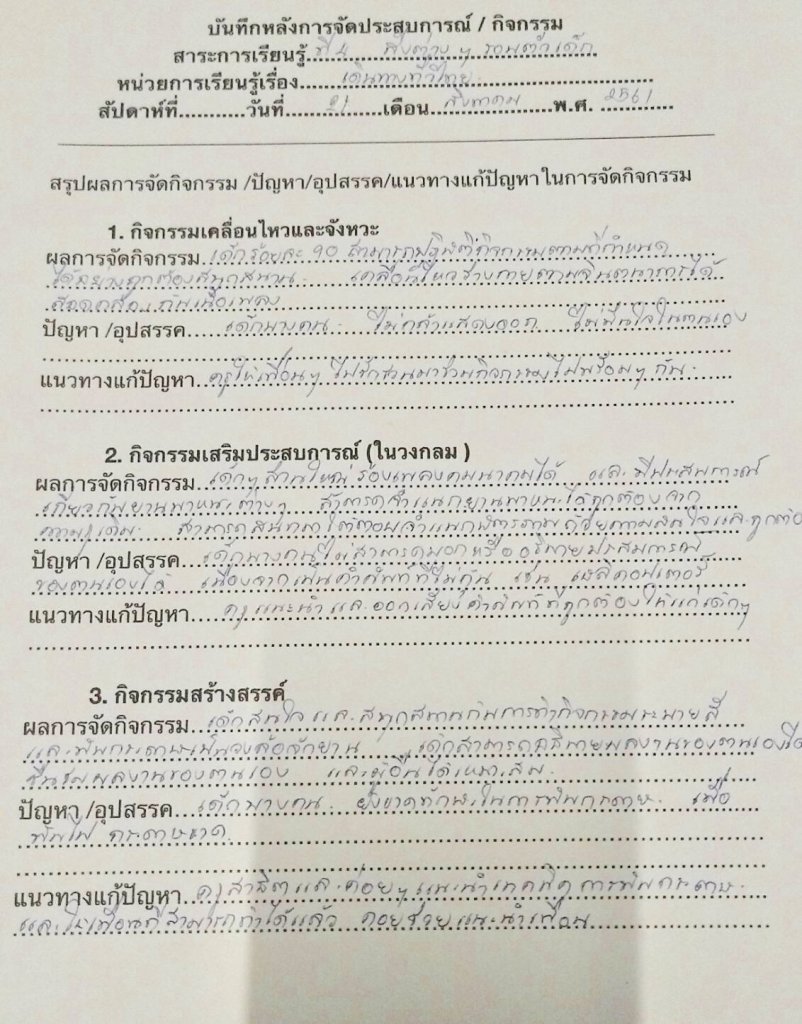 บันทึกหลังการจัดประสบการณ์ / กิจกรรม
สาระการเรียนรู้....ที่ 4 สิ่งต่าง ๆ รอบตัวเด็ก
หน่วยการเรียนรู้เรื่อง........เดินทางทั่วไทย........
สัปดาห์ที่...........วันที่......21......เดือน...สิงหาคม...พ.ศ. 2561
สรุปผลการจัดกิจกรรม /ปัญหา/อุปสรรค/แนวทางแก้ปัญหาในการจัดกิจกรรม
1. กิจกรรมเคลื่อนไหวและจังหวะ
ผลการจัดกิจกรรม เด็กร้อยละ 90 สามารถปฏิบัติกิจกรรมตามที่กำหนด
ได้อย่างถูกต้องสนุกสนาน เคลื่อนไหวร่างกายตามจินตนาการได้
สอดคล้องกับเนื้อเพลง
ปัญหา /อุปสรรค....เด็กบางคน ไม่กล้าแสดงออก ไม่มั่นใจในตนเอง
แนวทางแก้ปัญหา ครูให้เพื่อนๆ ไปชักชวนมาร่วมกิจกรรมไปพร้อมๆ กัน
2. กิจกรรมเสริมประสบการณ์ (ในวงกลม )
ผลการจัดกิจกรรม...เด็กๆ ส่วนใหญ่ ร้องเพลงคมนาคมได้ และมีประสบการณ์
เกี่ยวกับยานพาหนะต่างๆ สามารถจำแนกยานพาหนะได้ถูกต้องจาก
สามารถสนทนาโต้ตอบ ด้วยความสนใจและถูกต้อง
ปัญหา /อุปสรรค...เด็กบางคนไม่สามารถบอกหรืออธิบายประสบการณ์
ของตนเองได้ เนื่องจากเป็นคำศัพท์ที่ไม่คุ้น เช่น เฮลิคอปเตอร์
แนวทางแก้ปัญหา....ครูแนะนำและออกเสียงคำศัพท์ที่ถูกต้องให้แก่เด็กๆ
3. กิจกรรมสร้างสรรค์
ผลการจัดกิจกรรม...เด็กสนใจและสนุกสนานกับการทำกิจกรรมระบายสี
และพับกระดาษ เด็กสามารถอธิบายผลงานของตนเองได้
ชื่นชมผลงานของตนเอง และผู้อื่นได้เหมาะสม
ปัญหา /อุปสรรค...เด็กบางคน ยังขาดทักษะในการพับกระดาษ เมื่อ
พับไป กระดาษขาด
แนวทางแก้ปัญหา ครูสาธิตและค่อยๆ แนะนำเทคนิคการพับกระดาษ
และให้เพื่อนที่สามารถทำได้แล้ว คอยช่วยแนะนำเพื่อน